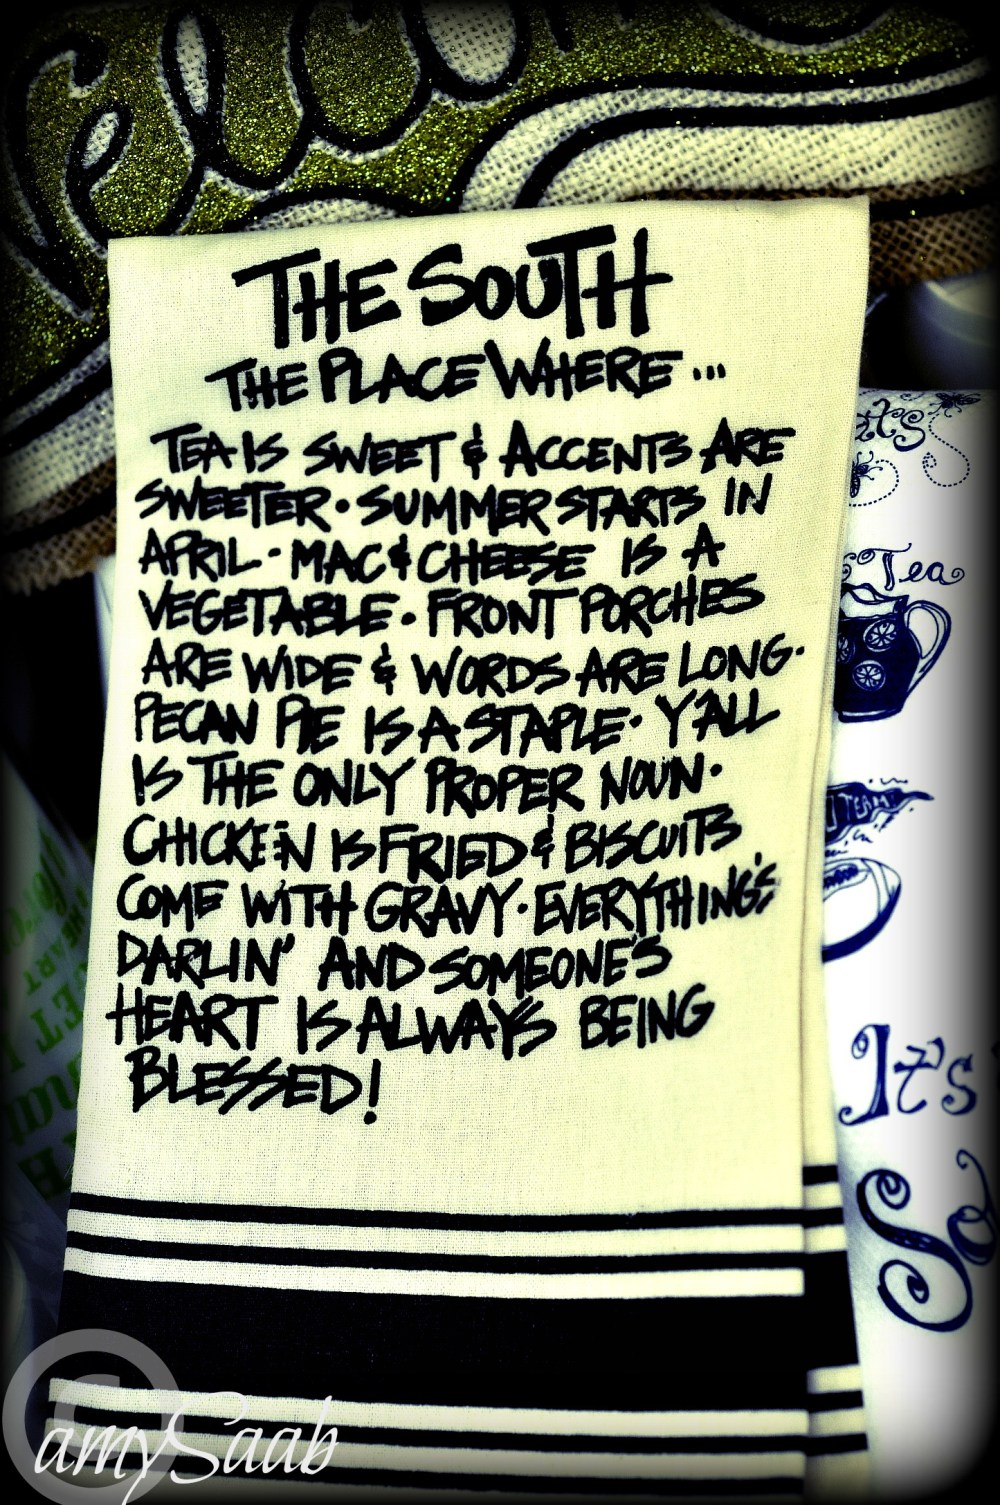 THE SOUTH
THE PLACE WHERE ...
TEA IS SWEET & ACCENTS ARE
SWEETER · SUMMER STARTS IN
APRIL · MAC & CHEESE IS A
VEGETABLE · FRONT PORCHES
ARE WIDE & WORDS ARE LONG ·
PECAN PIE IS A STAPLE · Y'ALL
IS THE ONLY PROPER NOUN ·
CHICKEN IS FRIED & BISCUITS
COME WITH GRAVY · EVERYTHING'S
DARLIN' AND SOMEONE'S
HEART IS ALWAYS BEING
BLESSED!
Tea
It's
So
© amySaab